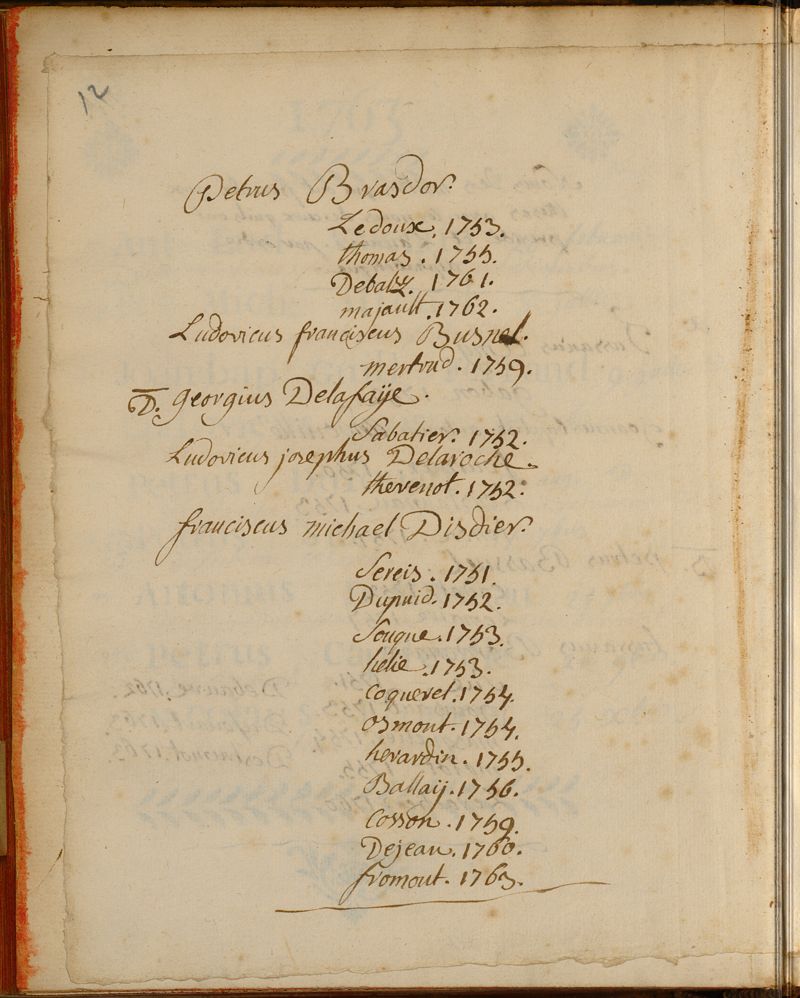 12
Petrus Brasdor.
Ledoux. 1753.
thomas. 1755.
Debalz. 1761.
majault. 1762.
Ludovicus franciscus Busnel.
mertrud. 1759.
D. georgius Delafaÿe.
Sabatier. 1752.
Ludovicus josephus Delaroche.
thevenot. 1752.
franciscus michael Disdier.
Sereis. 1751.
Dupuid. 1752.
Sougne. 1753.
hélie. 1753.
Coqueret. 1754.
Osmont. 1754.
herardin. 1755.
Ballaÿ. 1756.
Cosson. 1759.
Dejean. 1760.
fromont. 1763.